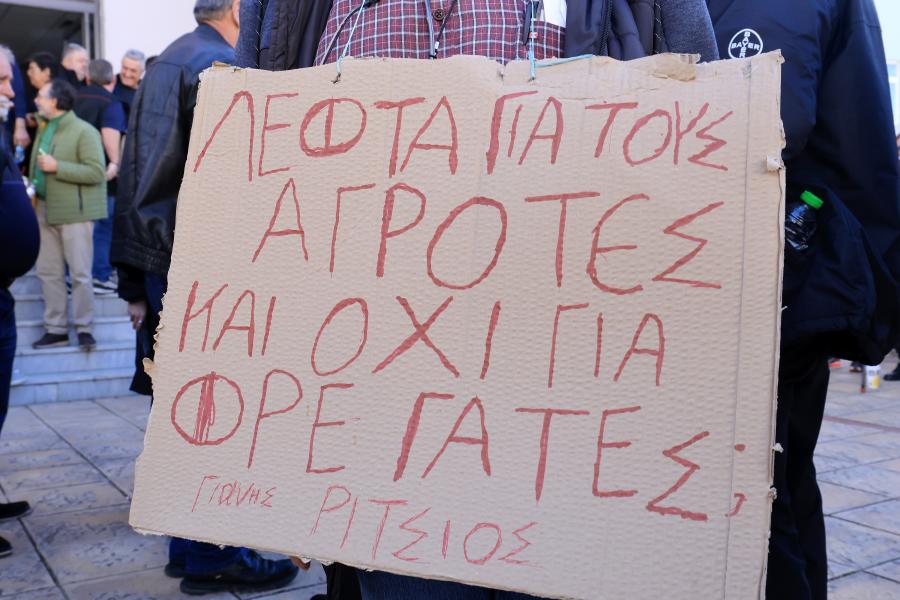 ΛΕΦΤΑ ΓΙΑ ΤΟΥΣ
ΑΓΡΟΤΕΣ
ΚΑΙ ΟΧΙ ΓΙΑ
ΦΡΕΓΑΤΕΣ;
ΓΙΑΝΝΗΣ ΡΙΤΣΙΟΣ
BAYER
BAYER